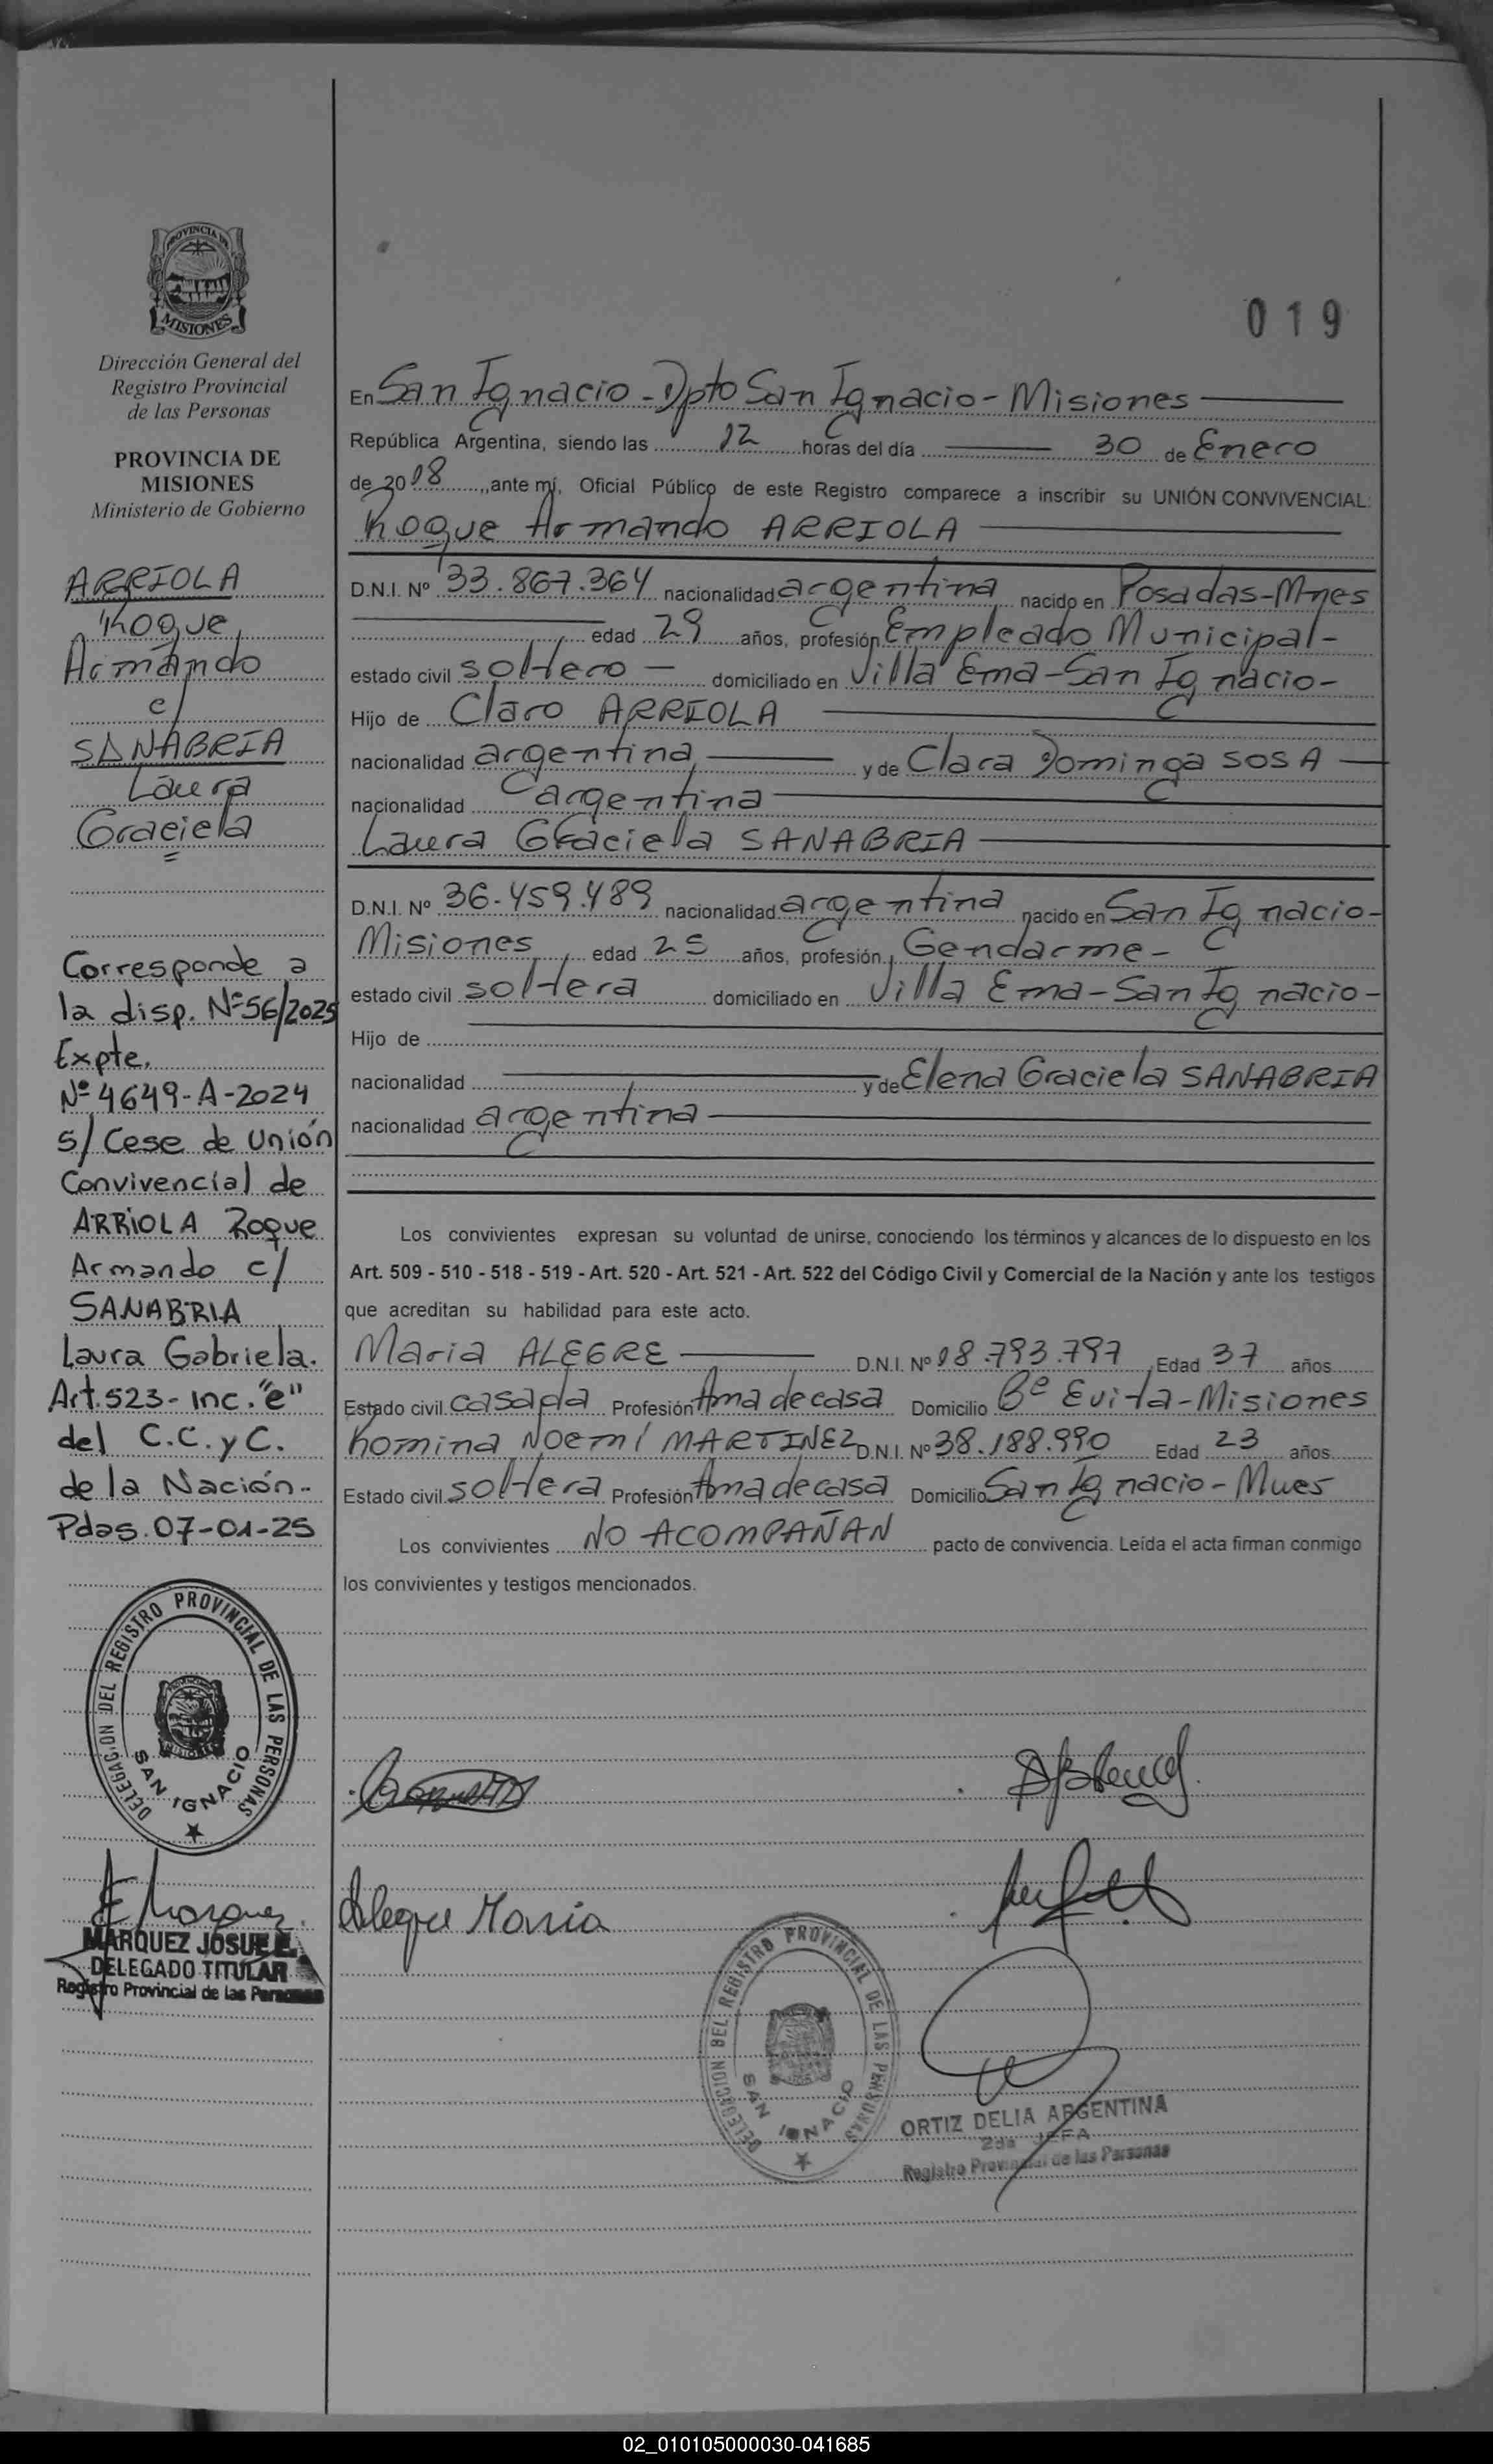 PROVINCIA DE
MISIONES
Dirección General del
Registro Provincial
de las Personas
PROVINCIA DE
MISIONES
Ministerio de Gobierno
ARRIOLA
Roque
Armando
c/
SANABRIA
Laura
Graciela
Corresponde a
la disp. Nº56/2025
Expte.
Nº 4649-A-2024
s/ Cese de Unión
Convivencial de
ARRIOLA Roque
Armando c/
SANABRIA
Laura Gabriela.
Art.523- inc. "e"
del C.C. y C.
de la Nación.-
Pdas. 07-01-25
DELEGACION DEL REGISTRO PROVINCIAL DE LAS PERSONAS
SAN IGNACIO
MARQUEZ JOSUE E.
DELEGADO TITULAR
Registro Provincial de las Personas
019
En San Ignacio - Dpto San Ignacio - Misiones
República Argentina, siendo las 12 horas del día 30 de Enero
de 2018, ante mí, Oficial Público de este Registro comparece a inscribir su UNIÓN CONVIVENCIAL:
Roque Armando ARRIOLA
D.N.I. Nº 33.867.364 nacionalidad argentina nacido en Posadas-Mnes
edad 29 años, profesión Empleado Municipal-
estado civil soltero - domiciliado en Villa Ema-San Ignacio-
Hijo de Claro ARRIOLA
nacionalidad argentina y de Clara Dominga SOSA
nacionalidad argentina
Laura Graciela SANABRIA
D.N.I. Nº 36.459.489 nacionalidad argentina nacido en San Ignacio-
Misiones edad 25 años, profesión Gendarme-
estado civil soltera domiciliado en Villa Ema-San Ignacio-
Hijo de
nacionalidad y de Elena Graciela SANABRIA
nacionalidad argentina
Los convivientes expresan su voluntad de unirse, conociendo los términos y alcances de lo dispuesto en los
Art. 509 - 510 - 518 - 519 - Art. 520 - Art. 521 - Art. 522 del Código Civil y Comercial de la Nación y ante los testigos
que acreditan su habilidad para este acto.
Maria ALEGRE D.N.I. Nº 18.793.797 Edad 37 años
Estado civil casada Profesión Ama de casa Domicilio Bº Evita-Misiones
Romina Noemí MARTINEZ D.N.I. Nº 38.188.990 Edad 23 años
Estado civil soltera Profesión Ama de casa Domicilio San Ignacio-Mnes
Los convivientes NO ACOMPAÑAN pacto de convivencia. Leída el acta firman conmigo
los convivientes y testigos mencionados.
Alegre Maria
DELEGACION DEL REGISTRO PROVINCIAL DE LAS PERSONAS
SAN IGNACIO
ORTIZ DELIA ARGENTINA
2da JEFA
Registro Provincial de las Personas
02_010105000030-041685